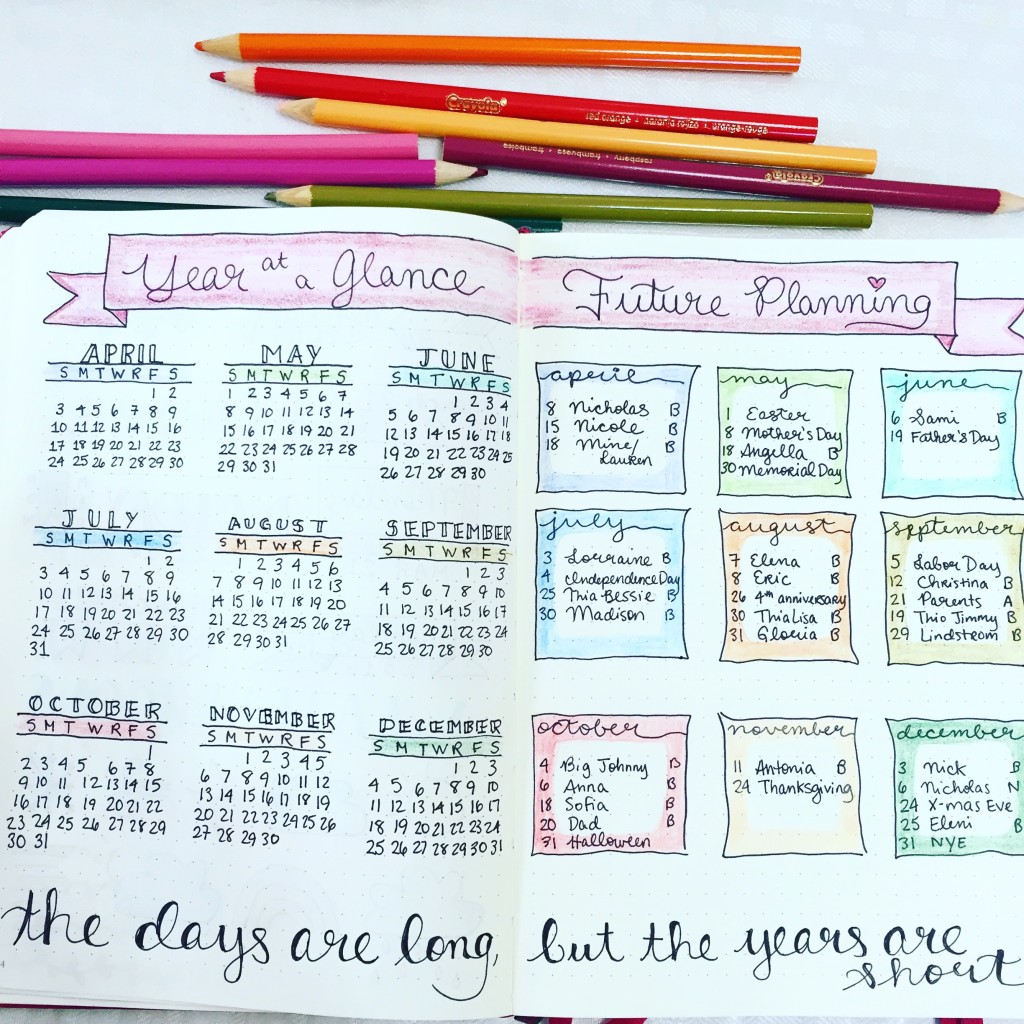 Crayola
red orange • naranja rojizo • orange-rouge
raspberry • frambuesa • framboise
Crayola
Year at a Glance
APRIL
S M T W R F S
1 2
3 4 5 6 7 8 9
10 11 12 13 14 15 16
17 18 19 20 21 22 23
24 25 26 27 28 29 30
MAY
S M T W R F S
1 2 3 4 5 6 7
8 9 10 11 12 13 14
15 16 17 18 19 20 21
22 23 24 25 26 27 28
29 30 31
JUNE
S M T W R F S
1 2 3 4
5 6 7 8 9 10 11
12 13 14 15 16 17 18
19 20 21 22 23 24 25
26 27 28 29 30
JULY
S M T W R F S
1 2
3 4 5 6 7 8 9
10 11 12 13 14 15 16
17 18 19 20 21 22 23
24 25 26 27 28 29 30
31
AUGUST
S M T W R F S
1 2 3 4 5 6
7 8 9 10 11 12 13
14 15 16 17 18 19 20
21 22 23 24 25 26 27
28 29 30 31
SEPTEMBER
S M T W R F S
1 2 3
4 5 6 7 8 9 10
11 12 13 14 15 16 17
18 19 20 21 22 23 24
25 26 27 28 29 30
OCTOBER
S M T W R F S
1
2 3 4 5 6 7 8
9 10 11 12 13 14 15
16 17 18 19 20 21 22
23 24 25 26 27 28 29
30 31
NOVEMBER
S M T W R F S
1 2 3 4 5
6 7 8 9 10 11 12
13 14 15 16 17 18 19
20 21 22 23 24 25 26
27 28 29 30
DECEMBER
S M T W R F S
1 2 3
4 5 6 7 8 9 10
11 12 13 14 15 16 17
18 19 20 21 22 23 24
25 26 27 28 29 30 31
the days are long,
Future Planning
april
8 Nicholas B
15 Nicole B
18 Mine/ B
Lauren
may
1 Easter
8 Mother's Day
18 Angella B
30 Memorial Day
june
6 Sami B
19 Father's Day
july
3 Lorraine B
4 Independence Day
25 Thia Bessie B
30 Madison B
august
7 Elena B
8 Eric B
26 4th anniversary
30 Thia Lisa B
31 Gloria B
september
5 Labor Day
12 Christina B
21 Parents A
19 Thio Jimmy B
29 Lindstrom B
october
4 Big Johnny B
6 Anna B
18 Sofia B
20 Dad B
31 Halloween
november
11 Antonia B
24 Thanksgiving
december
3 Nick B
6 Nicholas N
24 X-mas Eve
25 Eleni B
31 NYE
but the years are
short